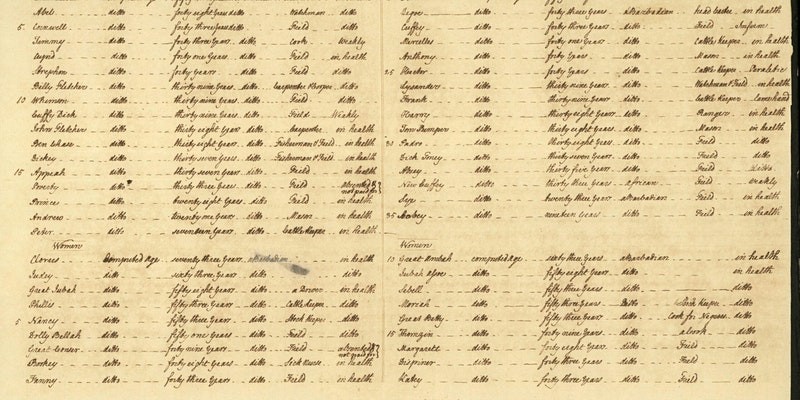 Abel ditto forty eight Years ditto Watchman ditto
5 ditto forty three Years ditto Field ditto
Tommy ditto forty three Years ditto Cook Weakly
ditto forty one Years ditto Field in health
Strephon ditto forty Years ditto Field ditto
Billy Fletcher ditto thirty nine Years ditto Carpenter & Keeper ditto
10 ditto thirty nine Years ditto Field ditto
Cuffy Dick ditto thirty nine Years ditto Field Weakly
John Fletcher ditto thirty eight Years ditto Carpenter in health
Ben ditto thirty eight Years ditto Fisherman & Field in health
ditto thirty seven Years ditto Fisherman & Field in health
15 Appeah ditto thirty seven Years ditto Field in health
ditto thirty three Years ditto Field not paid for
Prince ditto twenty eight Years ditto Field in health
Andrew ditto twenty one Years ditto Mason in health
Peter ditto seventeen Years ditto Cattle Keeper in health
Women
Computed Age seventy three Years Barbadian in health
Judey ditto sixty three Years ditto ditto
Great Jubah ditto fifty eight Years ditto a Driver in health
Phillis ditto fifty three Years ditto Cattle Keeper ditto
5 Nancy ditto fifty three Years ditto Stock Keeper ditto
Dolly Bellah ditto fifty one Years ditto Field ditto
Great ditto forty nine Years ditto Field not paid for
ditto forty eight Years ditto Sick Nurse in health
Fanny ditto forty three Years ditto Field in health
ditto forty three Years a Barbadian in health
Cuffey ditto forty three Years ditto Field Infirm
Marcellus ditto forty one Years ditto Cattle Keeper in health
Anthony ditto forty Years ditto Mason in health
25 Hector ditto forty Years ditto Cattle Keeper
Lysander ditto thirty nine Years ditto Watchman & Field in health
Frank ditto thirty nine Years ditto Cattle Keeper
Harry ditto thirty nine Years ditto Ranger in health
Tom Bumper ditto thirty eight Years ditto Mason in health
30 ditto thirty eight Years ditto Field ditto
Dick ditto thirty seven Years ditto Field ditto
ditto thirty five Years ditto Field ditto
New Cuffey ditto thirty three Years African Field weakly
ditto twenty three Years a Barbadian Field in health
35 ditto nineteen Years ditto Field in health
Women
10 Great computed Age sixty three Years a Barbadian in health
Jubah ditto fifty eight Years ditto in health
Sebell ditto fifty three Years ditto ditto
ditto fifty three Years ditto Keeper ditto
Great Betty ditto fifty three Years ditto Cook for Negroes ditto
15 Thomzin ditto forty nine Years ditto a Cook ditto
Margarett ditto forty eight Years ditto Field ditto
ditto forty three Years ditto Field ditto
Katey ditto forty three Years ditto Field ditto